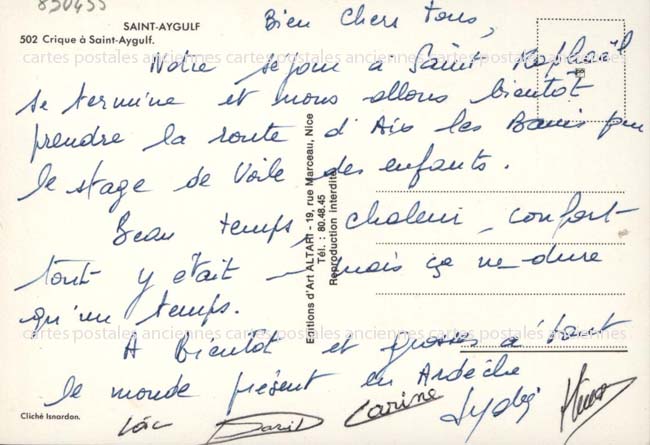 830455
SAINT-AYGULF
502 Crique à Saint-Aygulf.
Bien chers tous,
Notre séjour à Saint Raphaël
se termine et nous allons bientôt
prendre la route d'Aix les Bains pour
le stage de Voile des enfants.
Beau temps, chaleur, confort -
tout y était - mais ça ne dure
qu'un temps.
A Bientôt et grosses à tout
le monde présent en Ardèche
Loïc David Carine Lydie
Editions d'Art ALTARI - 19, rue Marceau, Nice
Tél. : 80.48.45
Reproduction interdite
Cliché Isnardon.
cartes postales anciennes cartes postales anciennes cartes postales anciennes
cartes postales anciennes cartes postales anciennes cartes postales anciennes